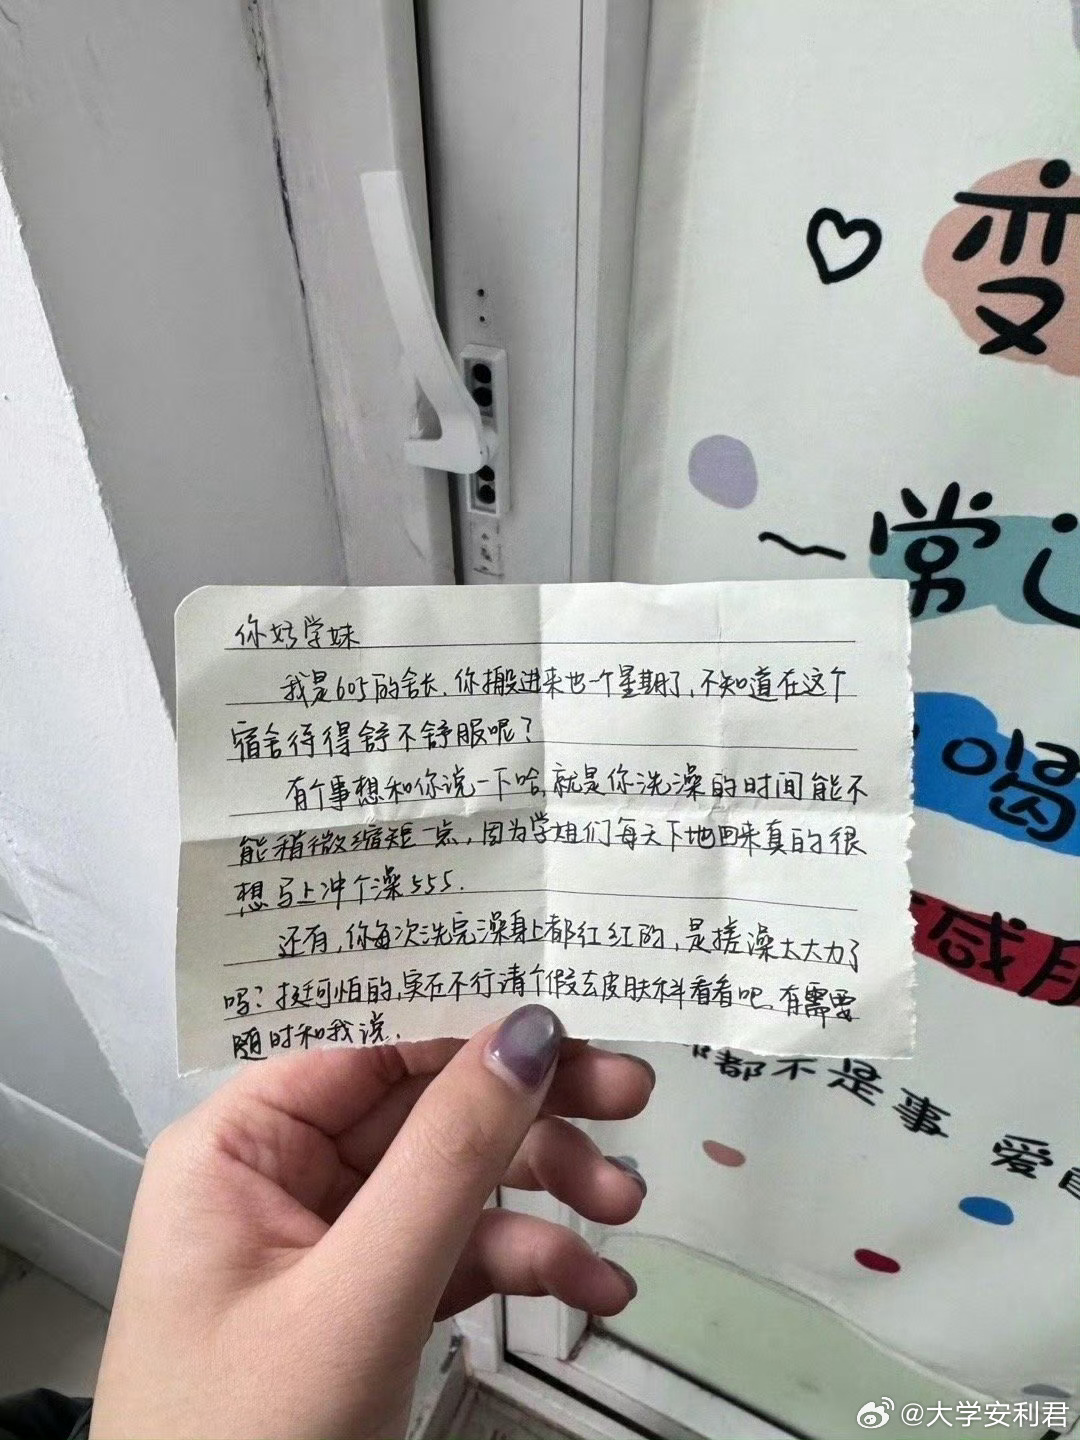 你好学妹
我是605的舍长,你搬进来也一个星期了,不知道在这个
宿舍待得舒不舒服呢?
有个事想和你说一下哈,就是你洗澡的时间能不
能稍微缩短一点,因为学姐们每天下地回来真的很
想马上冲个澡555.
还有,你每次洗完澡身上都红红的,是搓澡太大力了
吗?挺可怕的,实在不行请个假去皮肤科看看吧.有需要
随时和我说.
变
~常
喝
感
都不是事 爱
@大学安利君